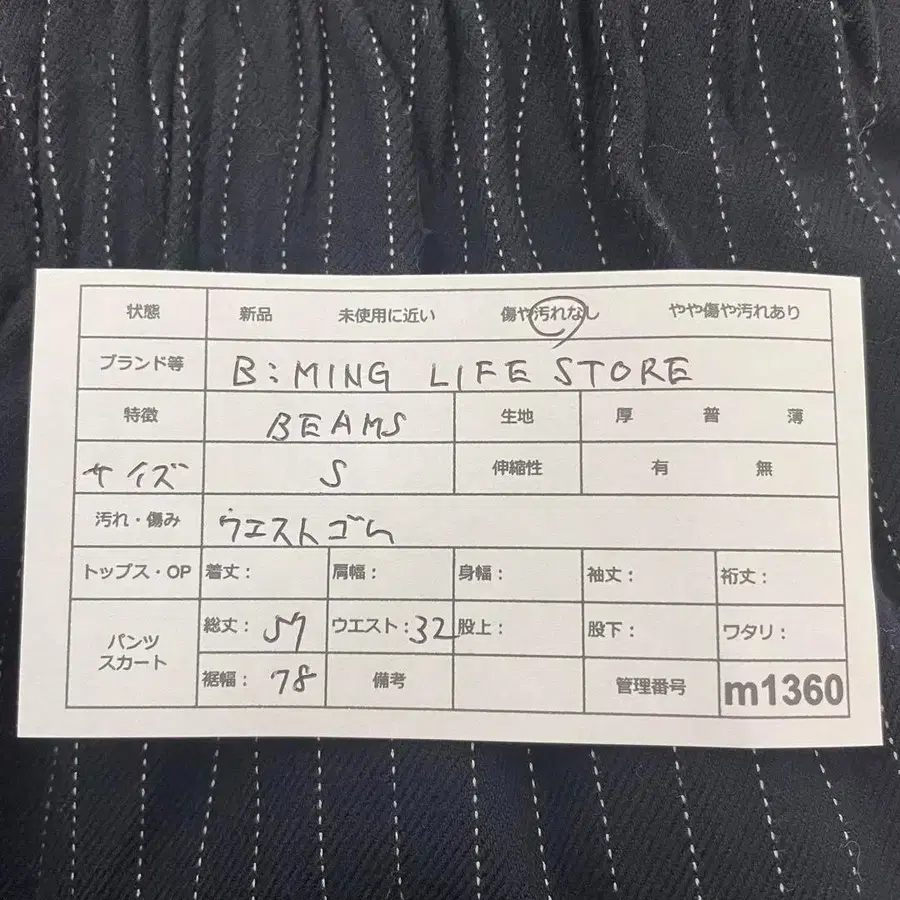 状態 新品 未使用に近い 傷や汚れなし やや傷や汚れあり
ブランド等 B:MING LIFE STORE
特徴 BEAMS 生地 厚 普 薄
サイズ S 伸縮性 有 無
汚れ・傷み ウエストゴム
トップス・OP 着丈: 肩幅: 身幅: 袖丈: 裄丈:
パンツ
スカート
総丈: 57 ウエスト: 32 股上: 股下: ワタリ:
裾幅: 78 備考 管理番号 m1360